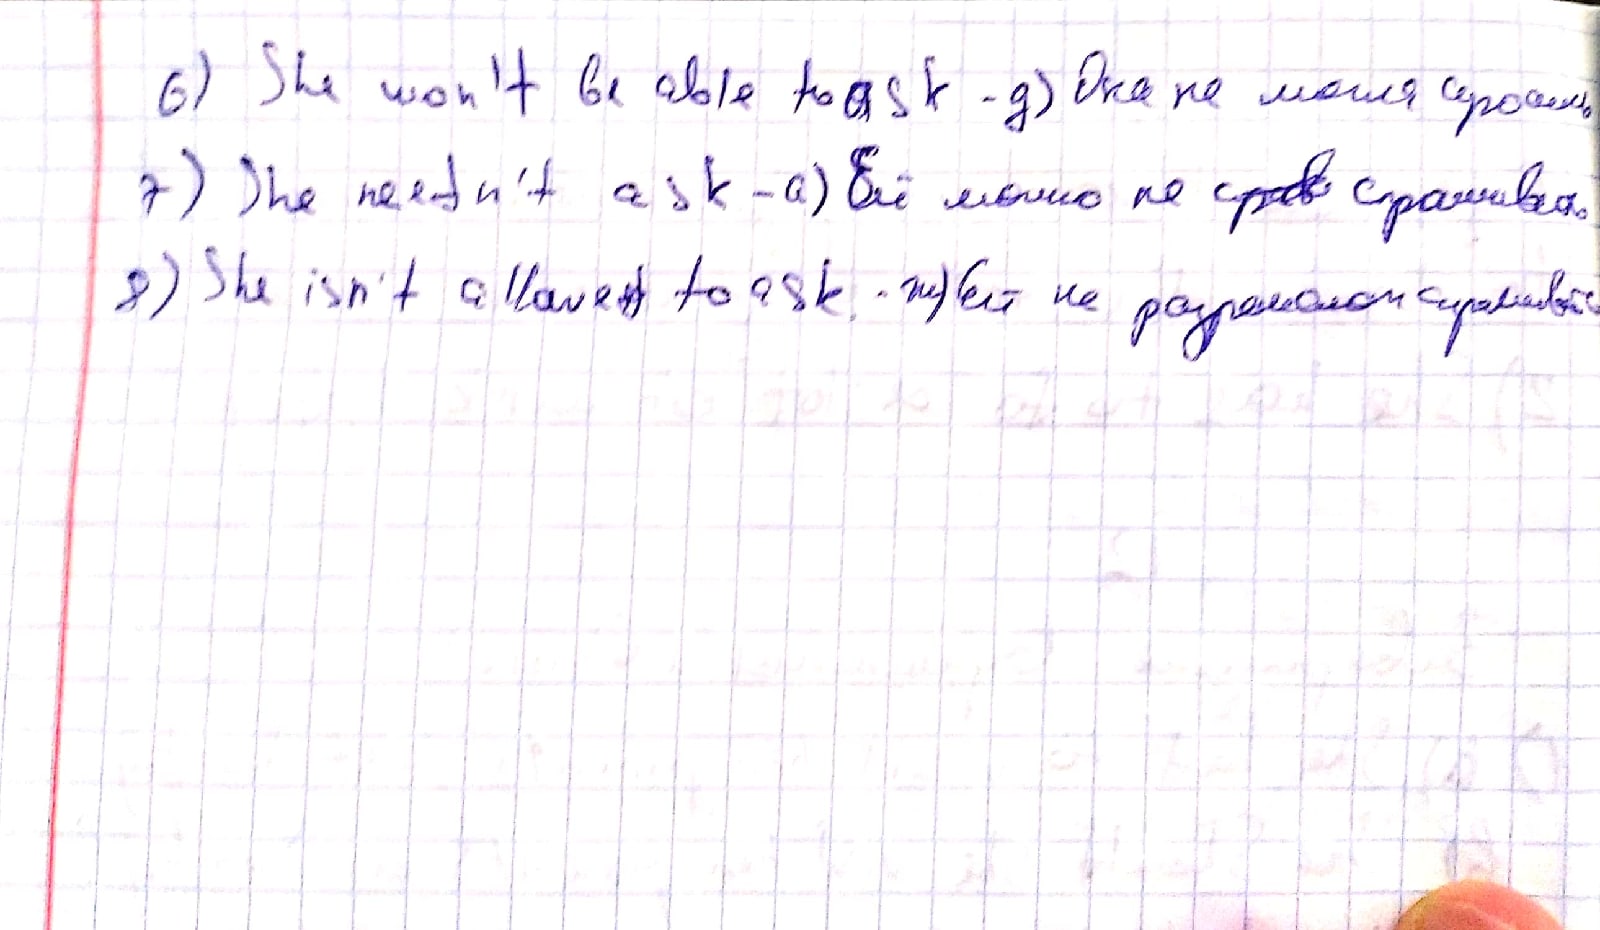 6) She won't be able to ask - д) Она не могла спросить
7) She needn't ask - а) Ей можно не спрашива.
8) She isn't allowed to ask. - ж) Ей не разрешают спрашивать